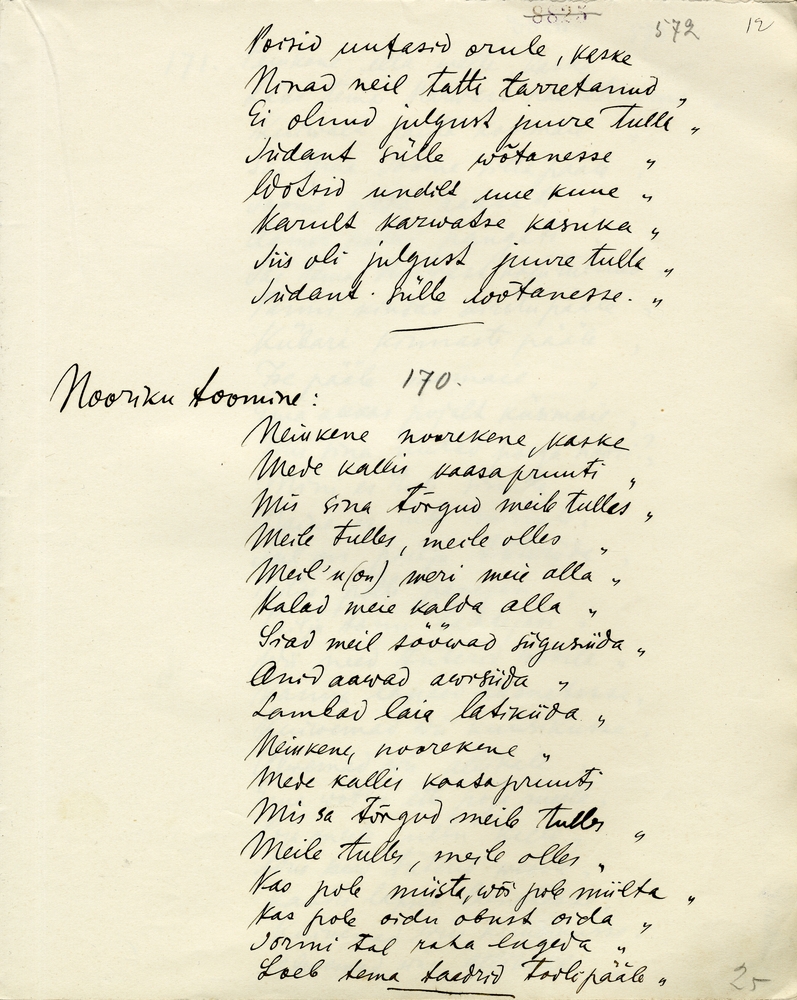 8825
572
12
Poisid uutasid orule, kaske
Ninad neil tatti tarretanud „
Ei olnud julgust juure tulla „
Südant sülle wõtanesse „
Wõtsid undilt uue kuue „
Karult karwatse kasuka „
Siis oli julgust juure tulla „
Südant sülle wõtanesse. „
170.
Nooriku toomine:
Neiukene noorekene, kaske
Mede kallis kaasapruuti „
Mis sina tõrgud meile tulles „
Meile tulles, meile olles „
Meil'n(on) meri meie alla „
Kalad meie kalda alla „
Siad meil sööwad siigusiida „
Anid aawad awisiida „
Lambad laia latikiida „
Neiukene, noorekene „
Mede kallis kaasapruuti
Mis sa tõrgud meile tulles „
Meile tulles, meile olles „
Kas pole miista, wõi pole miilta „
Kas pole oidu obust oida „
Sormi tal raha lugeda „
Loeb tema taadrid toolipääle „
25